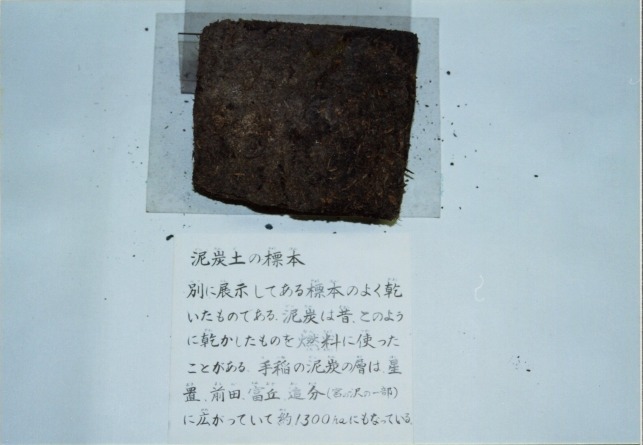 泥炭土の標本
別に展示してある標本のよく乾
いたものである。泥炭は昔、このよう
に乾かしたものを燃料に使った
ことがある。手稲の泥炭の層は、星
置、前田、富丘、追分(宮の沢の一部)
に広がっていて約1300haにもなっている。